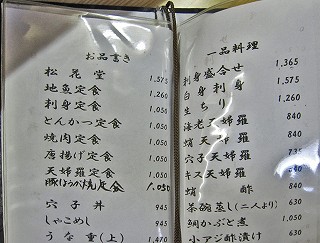 お品書き
松花堂 1,575
地魚定食 1,260
刺身定食 1,050
とんかつ定食 1,050
焼肉定食 1,050
唐揚げ定食 1,050
天婦羅定食 1,050
豚しょうが焼定食 1,050
穴子丼 945
しゃこめし 945
うな重(上) 1,470
一品料理
刺身盛合せ 1,365
白身刺身 1,575
生ちり 1,260
海老天婦羅 840
蛸天婦羅 840
穴子天婦羅 735
キス天婦羅 840
蛸酢 840
茶碗蒸し(二人より) 630
鯛かぶと煮 1,050
小アジ酢漬け 630